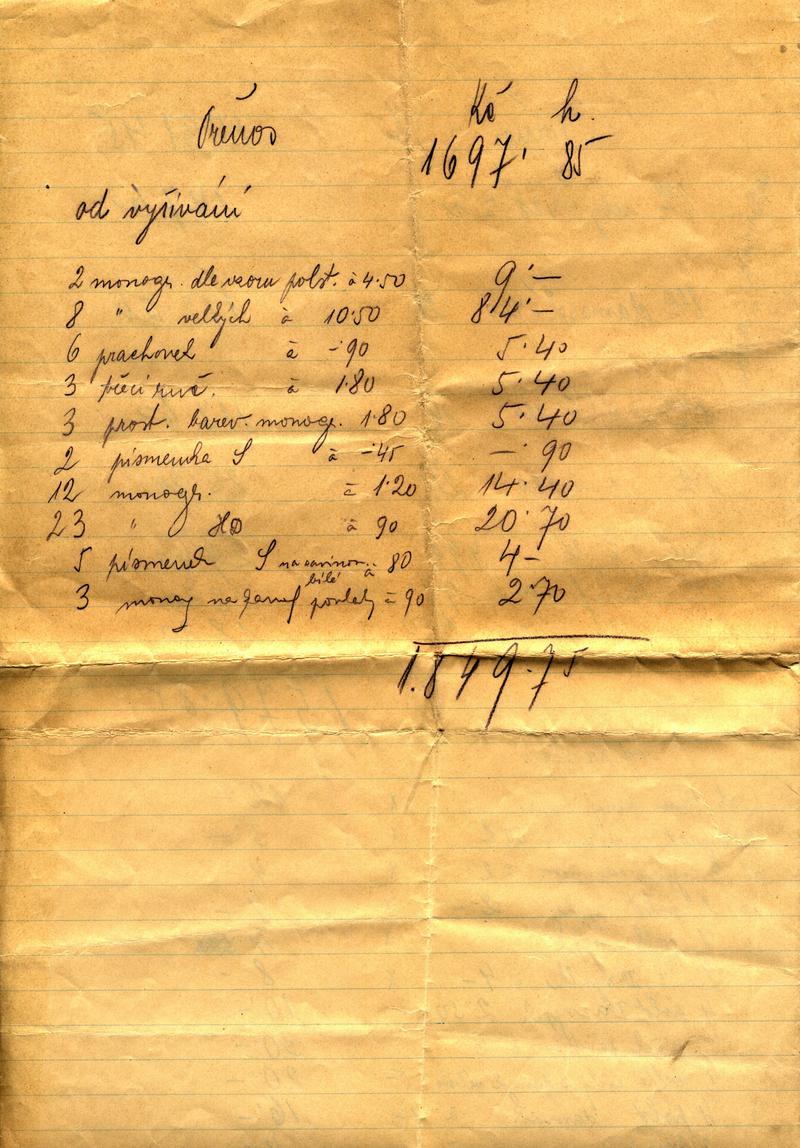 Kč h.
Přenos 1697· 85
od vyšívání
2 monogr. dle vzoru polšt. à 4·50 9·—
8 " velkých à 10·50 84·—
6 prachovek à -·90 5·40
3 à 1·80 5·40
3 prost. barev. monogr. 1·80 5·40
2 písmenka S à -·45 —·90
12 monogr. à 1·20 14·40
23 " à 90 20·70
5 písmenek S à 80 4-
bílé
3 monog na povlaky à 90 2·70
1.849·75